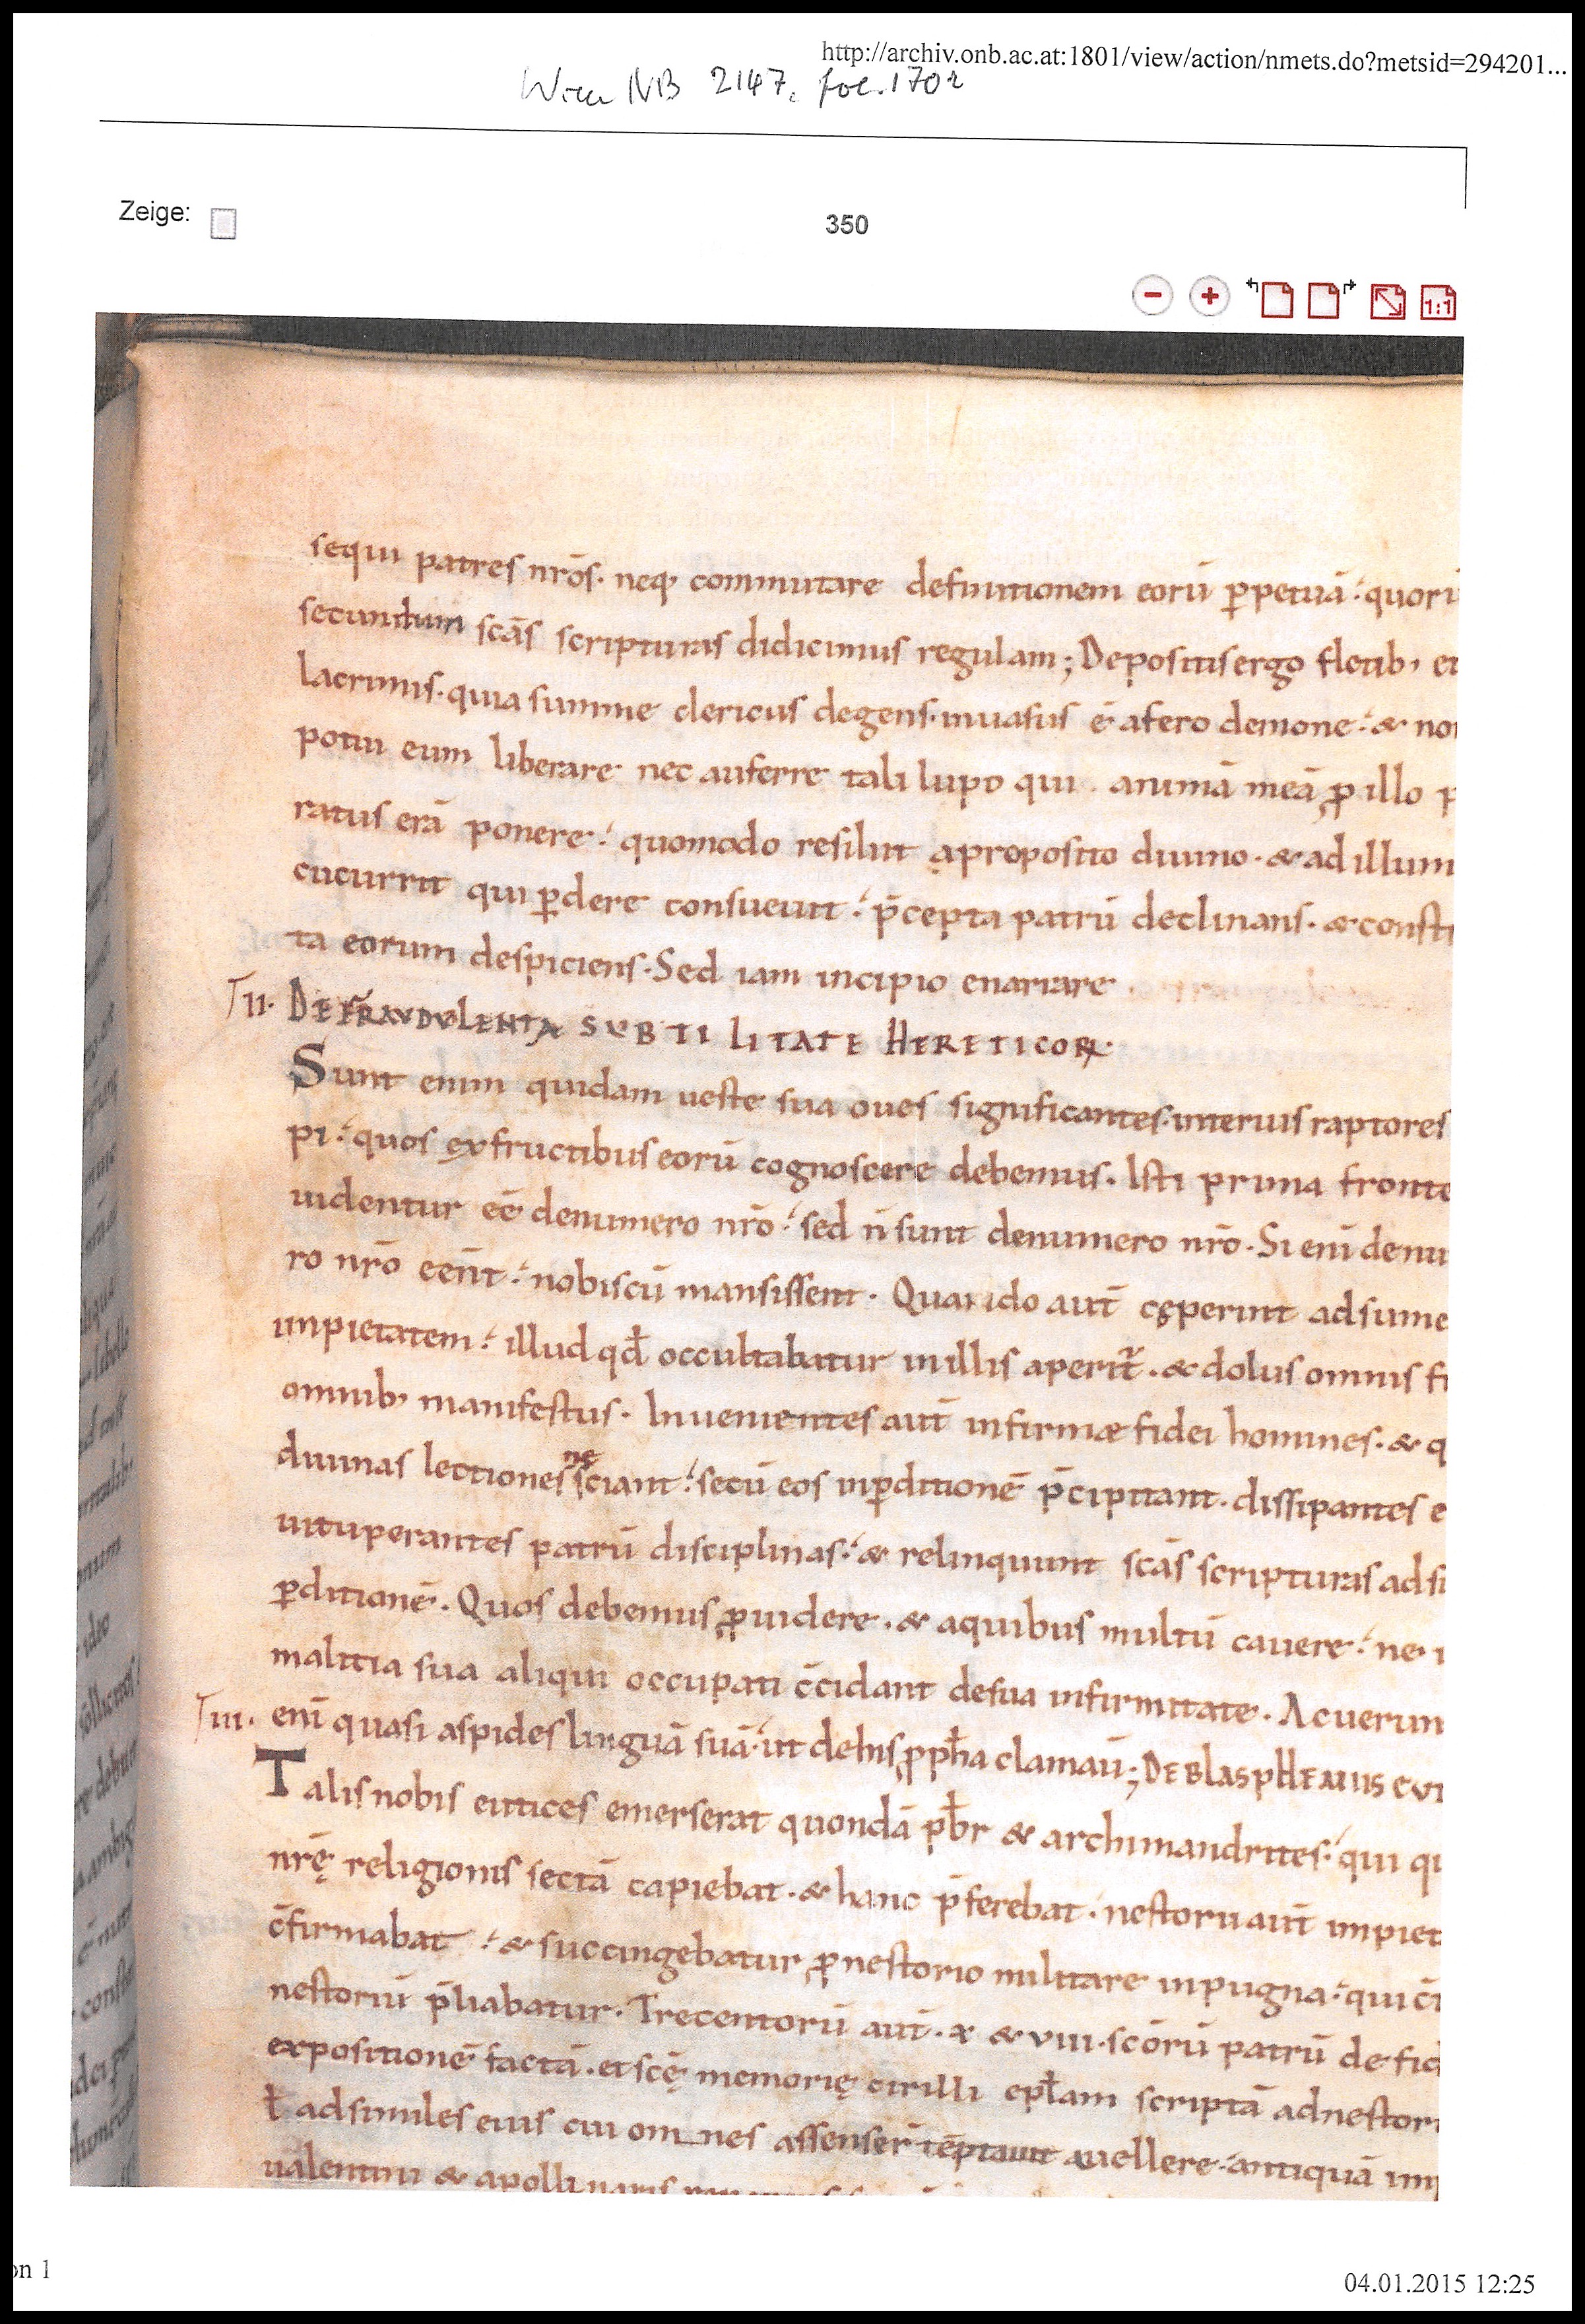 http://archiv.onb.ac.at:1801/view/action/nmets.do?metsid=294201...
Wien NB 2147, fol. 170r
Zeige:
350
1:1
sequi patres nr̄os· neq; commutare definitionem eorū ꝑpetuā· quorū
secundum scās scripturas didicimus regulam; Depositis ergo fletib; et
lacrimis· quia summe clericus degens· inuasus ē a fero demone· & non
potui eum liberare nec auferre tali lupo qui animā meā ꝓ illo p
ratus erā ponere· quomodo resiliit a proposito diuino· & ad illum
cucurrit qui ꝑdere consueuit· p̄cepta patrū declinans· & consti
ta eorum despiciens· Sed iam incipio enarrare
II· DE FRAVDVLENTA SVBTILITATE HERETICOꝜ·
Sunt enim quidam ueste sua oues significantes· interius raptores
pi· quos ex fructibus eorū cognoscere debemus· Isti prima fronte
uidentur eē de numero nr̄o· sed n̄ sunt de numero nr̄o· Si enī de nu
ro nr̄o eēnt· nobiscū mansissent· Quando aut̄ cęperint adsume
impietatem· illud qd̄ occultabatur in illis aperit̄· & dolus omnis fi
omnib; manifestus· Inuenientes aut̄ infirmæ fidei homines· & q
diuinas lectiones nesciant· secū eos in ꝑditionē p̄cipitant· dissipantes e
uituperantes patrū disciplinas· & relinquunt scās scripturas ad si
ꝑditionē· Quos debemus ꝓuidere· & a quibus multū cauere· ne i
malitia sua aliqui occupati c̄cidant de sua infirmitate· Acuerun
III· enī quasi aspides linguā suā· ut de his ꝓph̄a clamau̅; DE BLASPHEMIIS EVT
Talis nobis eutices emerserat quondā pb̄r & archimandrites· qui qi
nr̄ę religionis sectā capiebat· & hanc p̄ferebat· nestorii aut̄ impiet
c̄firmabat· & succingebatur ꝓ nestorio militare in pugna· qui c̄t
nestoriū p̄liabatur· Trecentorū aut̄· x & VIII· sc̄orū patrū de fid
expositionē factā· et sc̄ę memorię cirilli epl̄am scriptā ad nestori
ł ad similes eius cui omnes assenser̄ tēptauit auellere· antiquā im
ualentini & apollinaris
on 1
04.01.2015 12:25